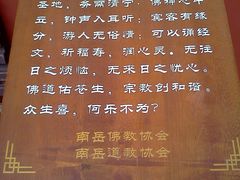 基地，务需清宁，佛禅心中
立，钟声入耳听；宾客有缘
分，游人无俗情；可以诵经
文，祈福寿，润心灵。无往
日之烦恼，无来日之忧心。
佛道佑苍生，宗教创和谐。
众生喜，何乐不为？
南岳佛教协会
南岳道教协会